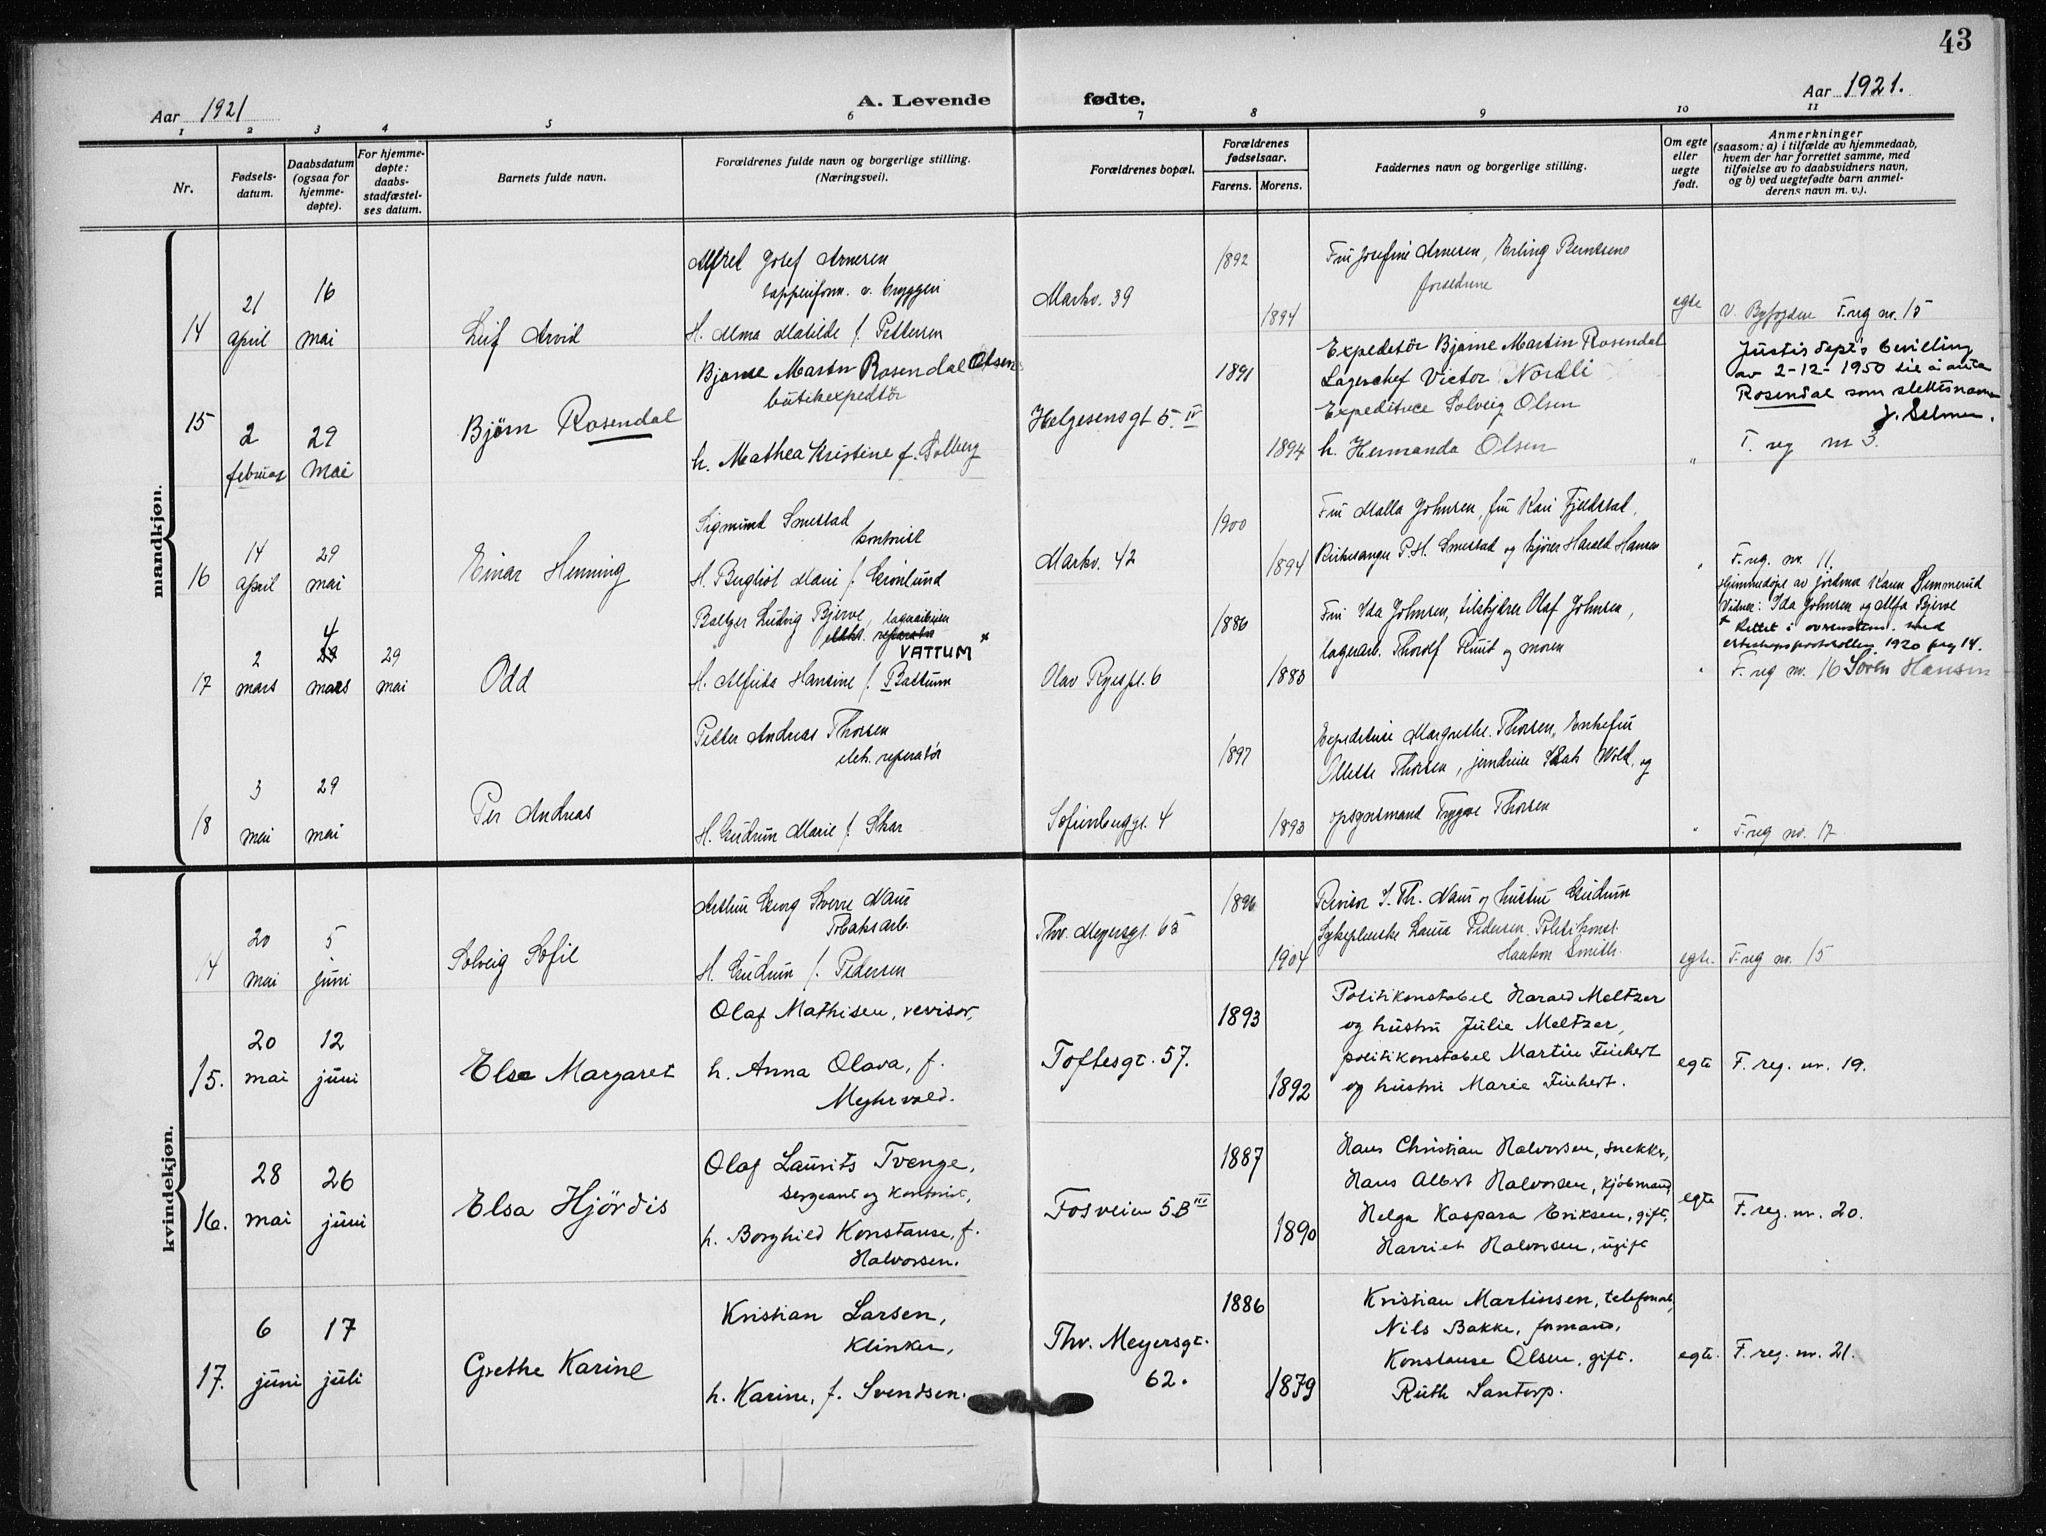 43
Aar 1921
A. Levende fødte.
Aar 1921.
1 2 3 4 5 6 7 8 9 10 11
Nr.
Fødsels-
datum.
Daabsdatum
(ogsaa for
hjemme-
døpte).
For hjemme-
døpte:
daabs-
stadfæstel-
ses datum.
Barnets fulde navn.
Forældrenes fulde navn og borgerlige stilling.
(Næringsvei).
Forældrenes bopæl.
Forældrenes
fødselsaar.
Farens. Morens.
Faddernes navn og borgerlige stilling.
Om egte
eller
uegte
født.
Anmerkninger
(saasom: a) i tilfælde av hjemmedaab,
hvem der har forrettet samme, med
tilføielse av to daabsvidners navn,
og b) ved uegtefødte barn anmel-
derens navn m. v.).
mandkjøn.
14
21
april
16
mai
Leif Arvid
Alfred Josef Arnesen
tappeform. v. bryggeri
H. Alma Matilde f. Pettersen
Markv. 39
1892
1894
Fru Josefine Arnesen, Erling Berntsens
foreldrene
egte
v. Byfogden F. reg nr. 15
15
2
februar
29
mai
Bjørn Rosendal
Bjarne Martin Rosendal Olsen
butikexpeditør
h. Mathea Kristine f. Solberg
Helgesensgt 5 IV
1891
1894
Expeditør Bjarne Martin Rosendal
Lagerchef Victor Nordli
Expeditrice Solveig Olsen
h. Hermanda Olsen
"
Justisdept's bevilling
av 2-12-1950 til å anta
Rosendal som slektsnavn
J. Selmer.
F. reg nr 3.
16
14
april
29
mai
Einar Henning
Sigmund Smestad
kontorist
H. Bergliot Marie f. Grønlund
Markv. 42
1900
1894
Fru Malla Johnsen, fru Kari Fjeldstad,
Kirkesanger P. H. Smestad og kjører Harald Hansen
"
F. reg. nr. 11.
17
2
mars
4
23
mars
29
mai
Odd
Baltzer Ludvig Bjerve, lagerarbeider
elektr. reparatør
VATTUM *
H. Alfrida Hansine f. Battum
Olav Ryespl. 6
1886
1883
Fru Ida Johnsen, tilskjærer Olaf Johnsen,
lagerarb. Thorolf Ruud og moren
"
Hjemmedøpt av jordmor Karen Semmerud
Vidner: Ida Johnsen og Alfa Bjerve
* Rettet i overenstem. med
ekteskapsprotokollen 1920 pag 14.
F. reg nr. 16 Søren Hansen
18
3
mai
29
mai
Per Andreas
Petter Andreas Thorsen
elek. reparatør
H. Gudrun Marie f. Skar
Sofienberggt. 4
1897
1893
Expeditrice Margrethe Thorsen, Enkefru
Ollette Thorsen, jerndreier Wold, og
opsynsmand Trygve Thorsen
"
F. reg nr. 17
kvindekjøn.
14
20
mai
5
juni
Solveig Sofie
Arthur Georg Sverre Naus
Tobaksarb.
H. Gudrun f. Pedersen
Thv. Meyersgt. 65
1896
1904
Revisor I. Th. Naus og hustru Gudrun
Sykepleierske Laura Pedersen. Politikonst.
Haakon Smith.
egte.
F. reg nr. 15
15.
20
mai
12
juni
Else Margaret
Olaf Mathisen, revisor,
h. Anna Olava, f.
Myhrvold.
Toftesgt. 57.
1893
1892
Politikonstabel Harald Meltzer
og hustru Julie Meltzer,
politikonstabel Martin Finhert
og hustru Marie Finhert.
egte
F. reg. nr. 19.
16.
28
mai
26
juni
Elsa Hjördis
Olaf Laurits Tvenge,
sergeant og kontorist,
h. Borghild Konstanse, f.
Halvorsen.
Fosveien 5B III
1887
1890
Hans Christian Halvorsen, snekker,
Hans Albert Halvorsen, kjöbmand
Helga Kaspara Eriksen, gift,
Harriet Halvorsen, ugift
egte
F. reg. nr. 20.
17.
6
juni
17
juli
Grethe Karine
Kristian Larsen,
Klinker,
h. Karine, f. Svendsen.
Thv. Meyersgt.
62.
1886
1879
Kristian Martinsen, telefonarb,
Nils Bakke, formand,
Konstanse Olsen, gift.
Ruth Santorp.
egte.
F. reg. nr. 21.